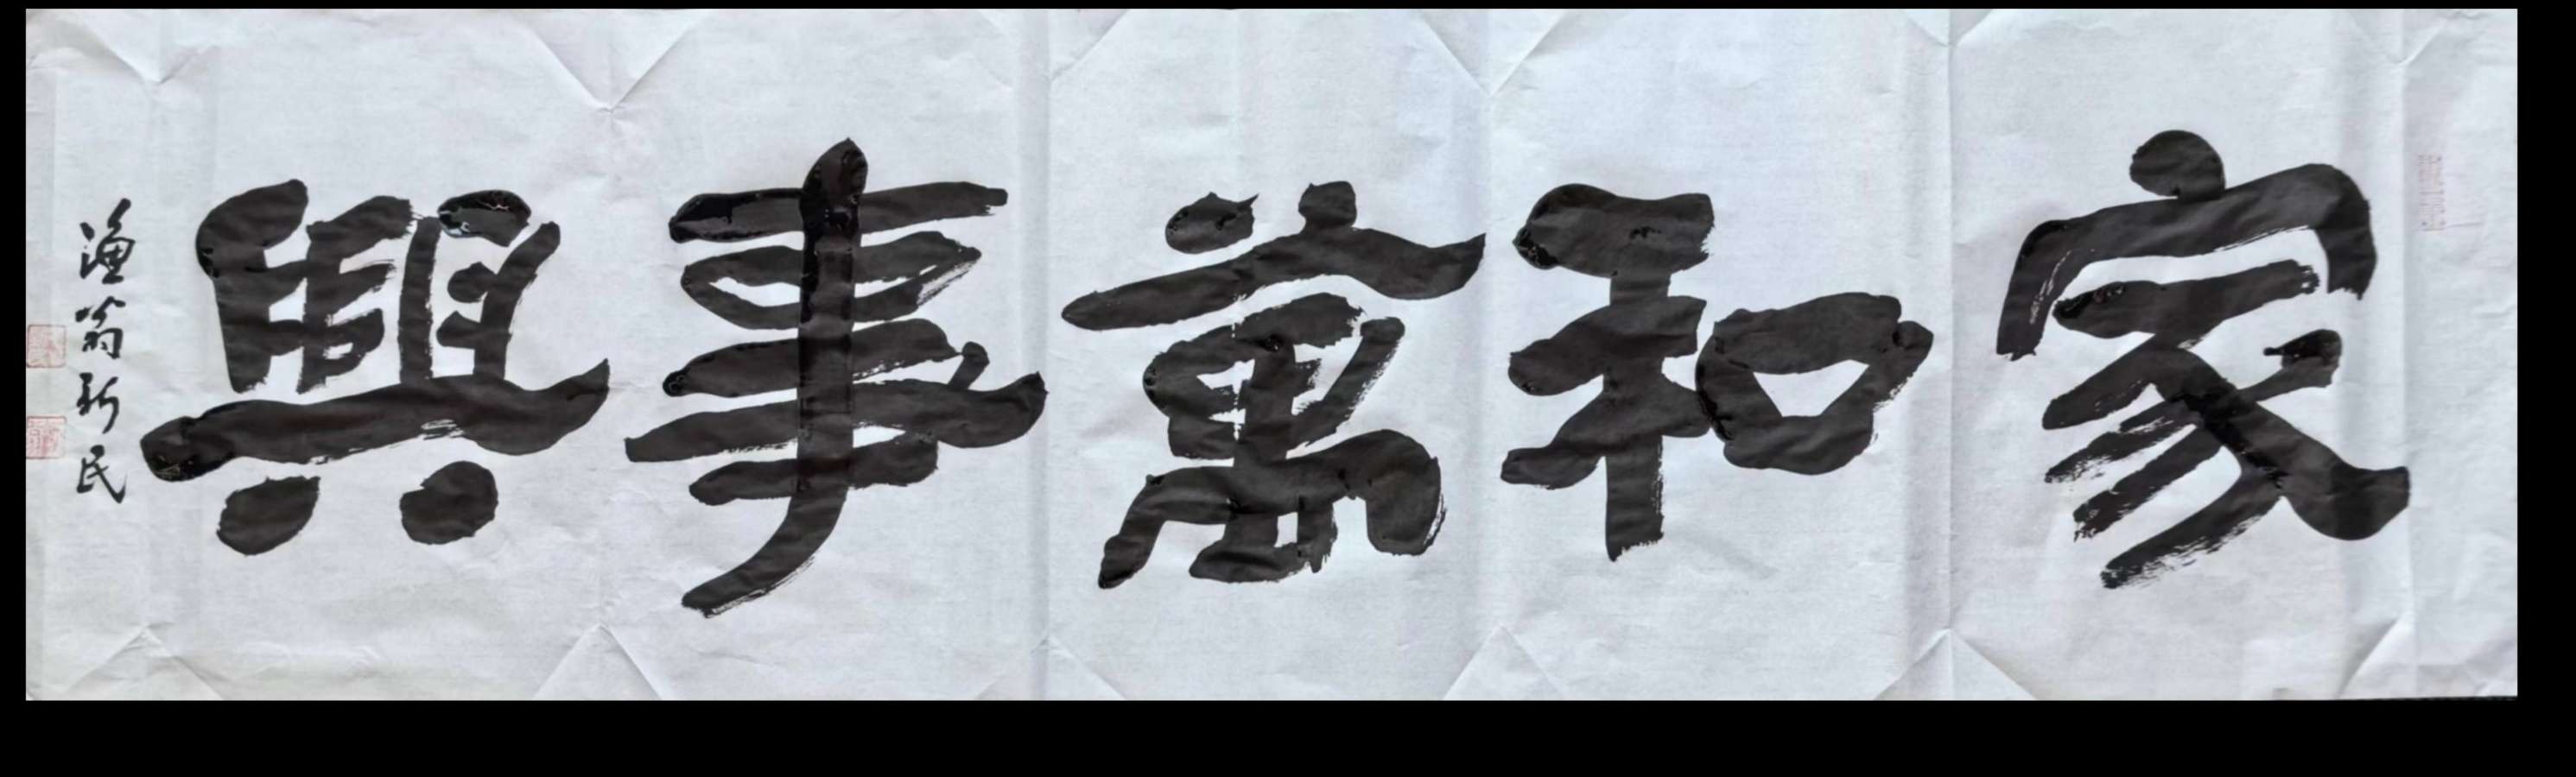 家和萬事興
漁翁新民